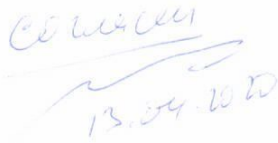 согласен
13.04.2020